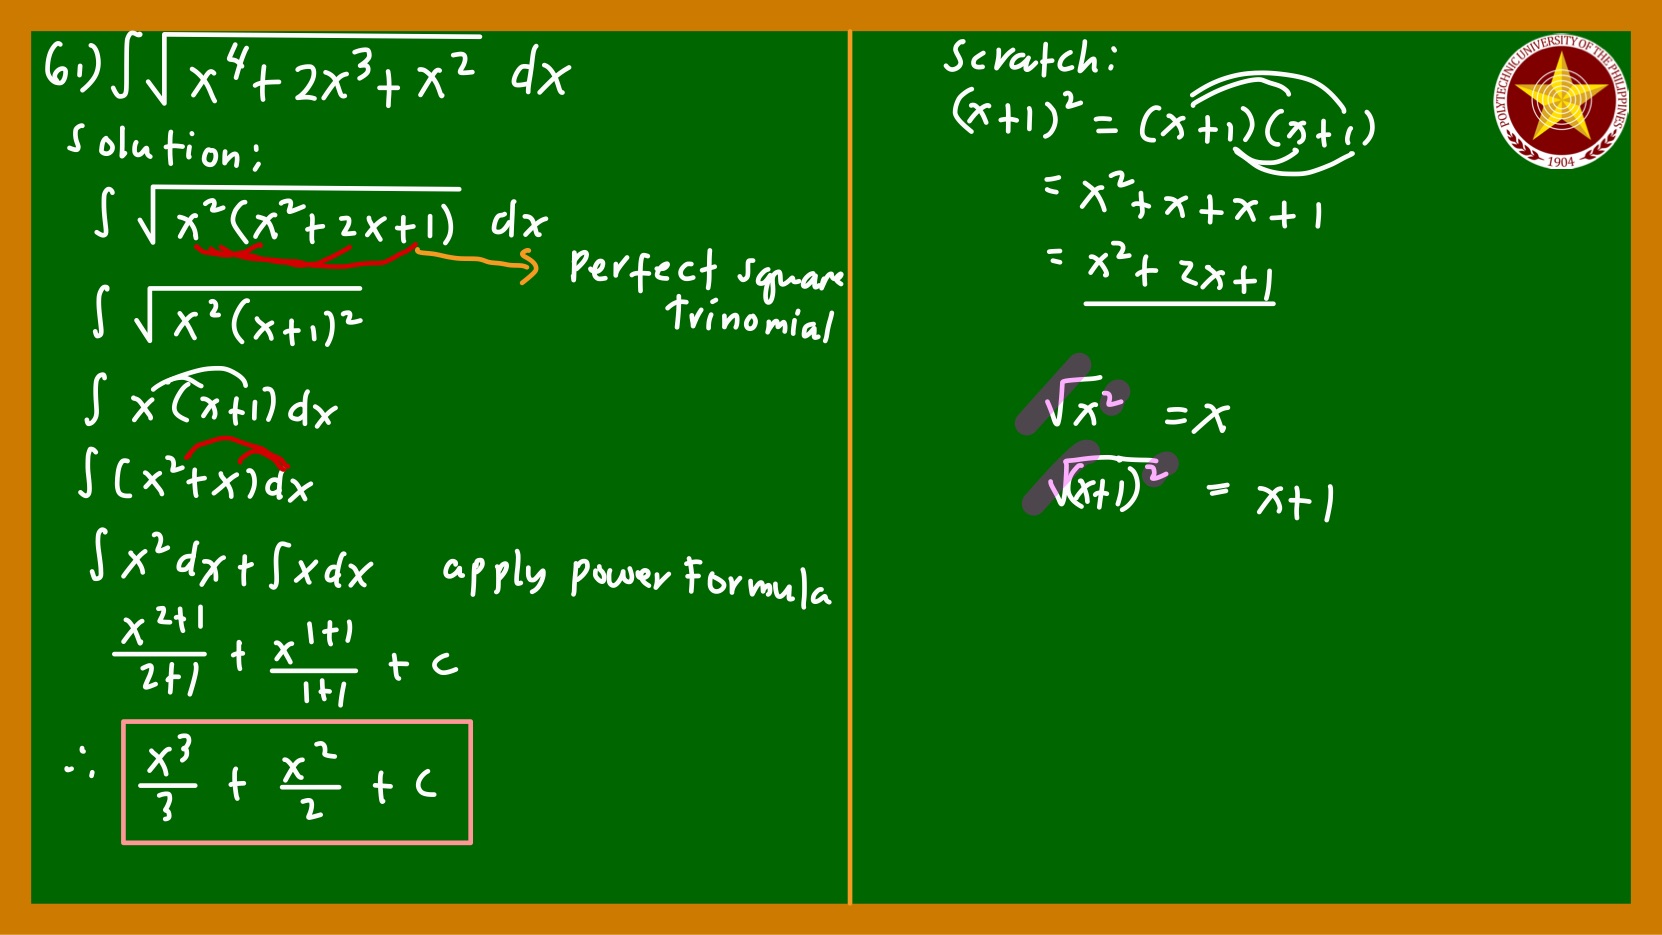 6.) ∫√(x⁴ + 2x³ + x²) dx
Solution:
∫ √(x²(x² + 2x + 1)) dx
Perfect Square
Trinomial
∫ √(x²(x+1)²)
∫ x(x+1) dx
∫ (x² + x) dx
∫ x² dx + ∫ x dx apply power Formula
x²⁺¹/2+1 + x¹⁺¹/1+1 + C
∴ x³/3 + x²/2 + C
Scratch:
(x+1)² = (x+1)(x+1)
= x² + x + x + 1
= x² + 2x + 1
√x² = x
√(x+1)² = x+1
POLYTECHNIC UNIVERSITY OF THE PHILIPPINES
1904